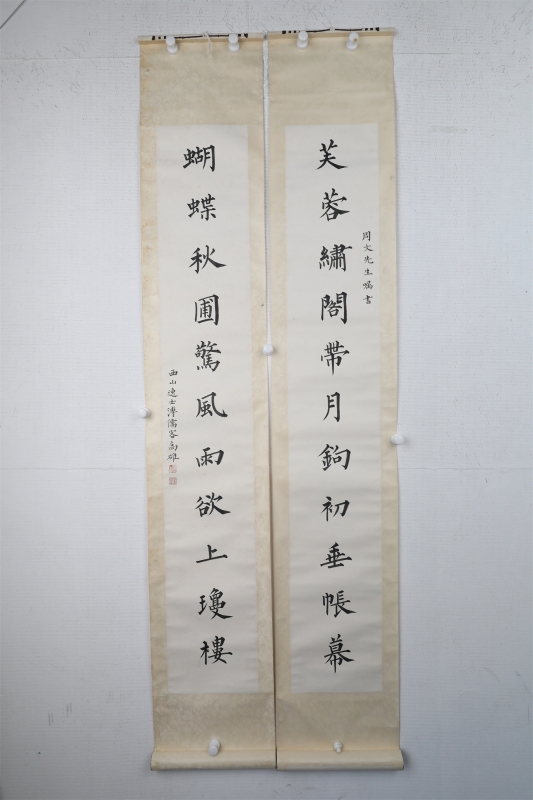 芙蓉繡閣帶月鉤初垂帳幕
周文先生囑書
蝴蝶秋圃驚風雨欲上瓊樓
西山逸士溥儒客高雄